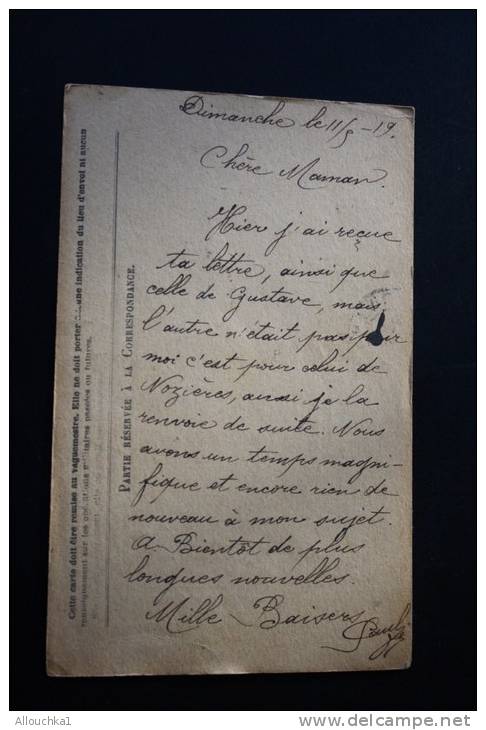 Dimanche le 11/5-19.
Chère Maman.
Hier j'ai reçue
ta lettre, ainsi que
celle de Gustave, mais
l'autre n'était pas pour
moi c'est pour celui de
Nozières, aussi je la
renvoie de suite. Nous
avons un temps magni-
fique et encore rien de
nouveau à mon sujet.
A Bientôt de plus
longues nouvelles.
Mille Baisers
PARTIE RÉSERVÉE À LA CORRESPONDANCE.
Cette carte doit être remise au vaguemestre. Elle ne doit porter aucune indication du lieu d'envoi ni aucun
renseignement sur les opérations militaires passées ou futures.
Allouchka1
www.delcampe.net